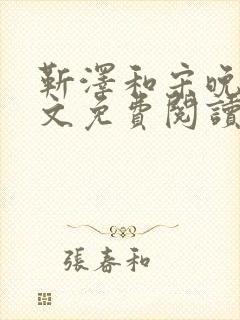 靳澤和宋晚
文免費閱讀
張春和